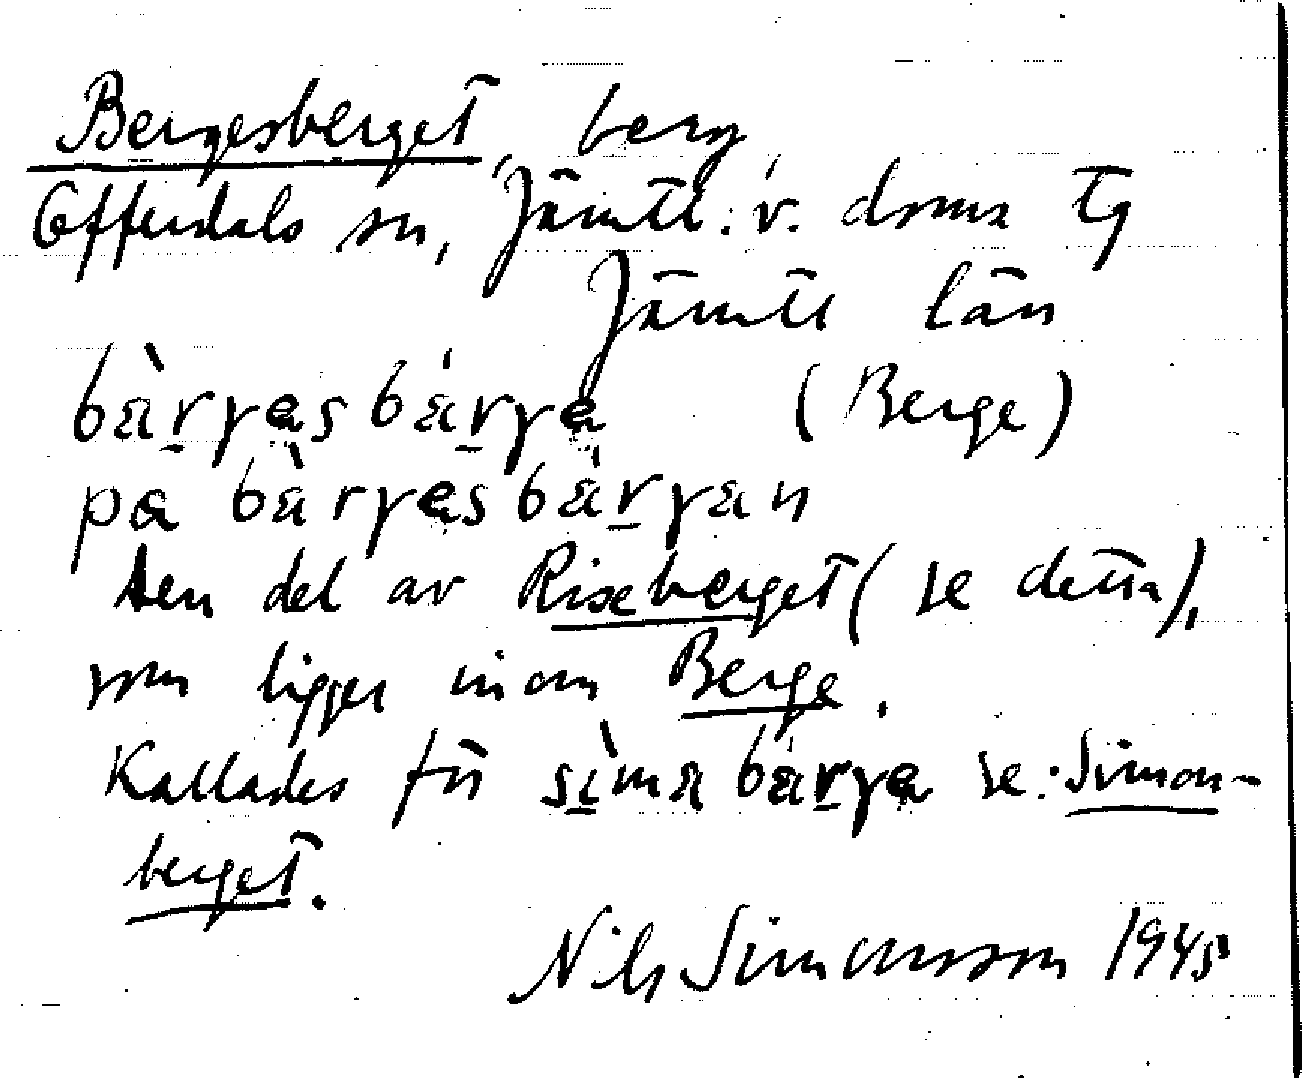 Bergesberget, berg
Offerdals sn, Jämtl. v. doms tg
Jämtl län
bàrγes bárγe (Berge)
pa bàrγes bàrγan
Den del av Riseberget (se detta),
som ligger inom Berge.
Kallades för sìma bárγe se: Simon-
berget.
Nils Simonsson 1945